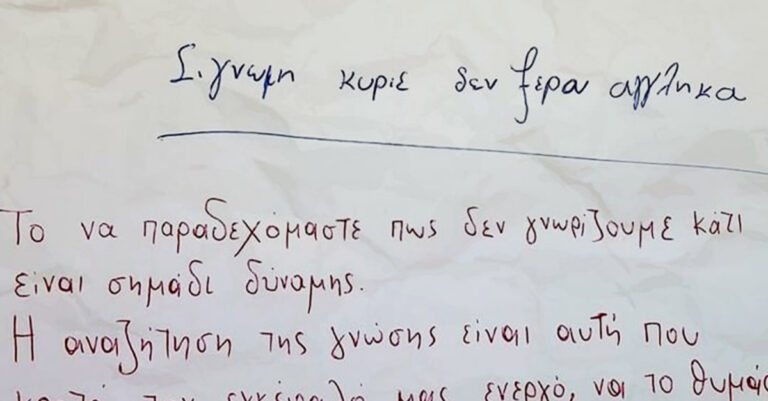 Σ.γνωμη κυριε δεν ξερα αγγληκα
Το να παραδεχόμαστε πως δεν γνωρίζουμε κάτι
είναι σημάδι δύναμης.
Η αναζήτηση της γνώσης είναι αυτή που
μας ενεργό, να το θυμάσ